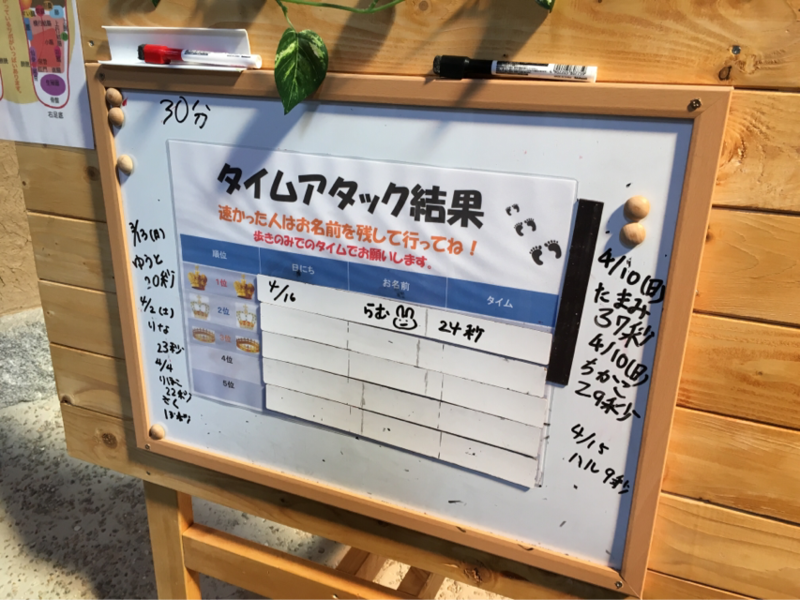 30分
タイムアタック結果
速かった人はお名前を残して行ってね！
歩きのみでのタイムでお願いします。
順位 日にち お名前 タイム
1位 4/16 らむ 24秒
2位
3位
4位
5位
ゆうと
20秒
4/2(土)
りな
23秒
4/4
22秒
4/10(日)
たまみ
37秒
4/10(日)
ちかこ
29秒
4/15
ハル 9秒
右足裏